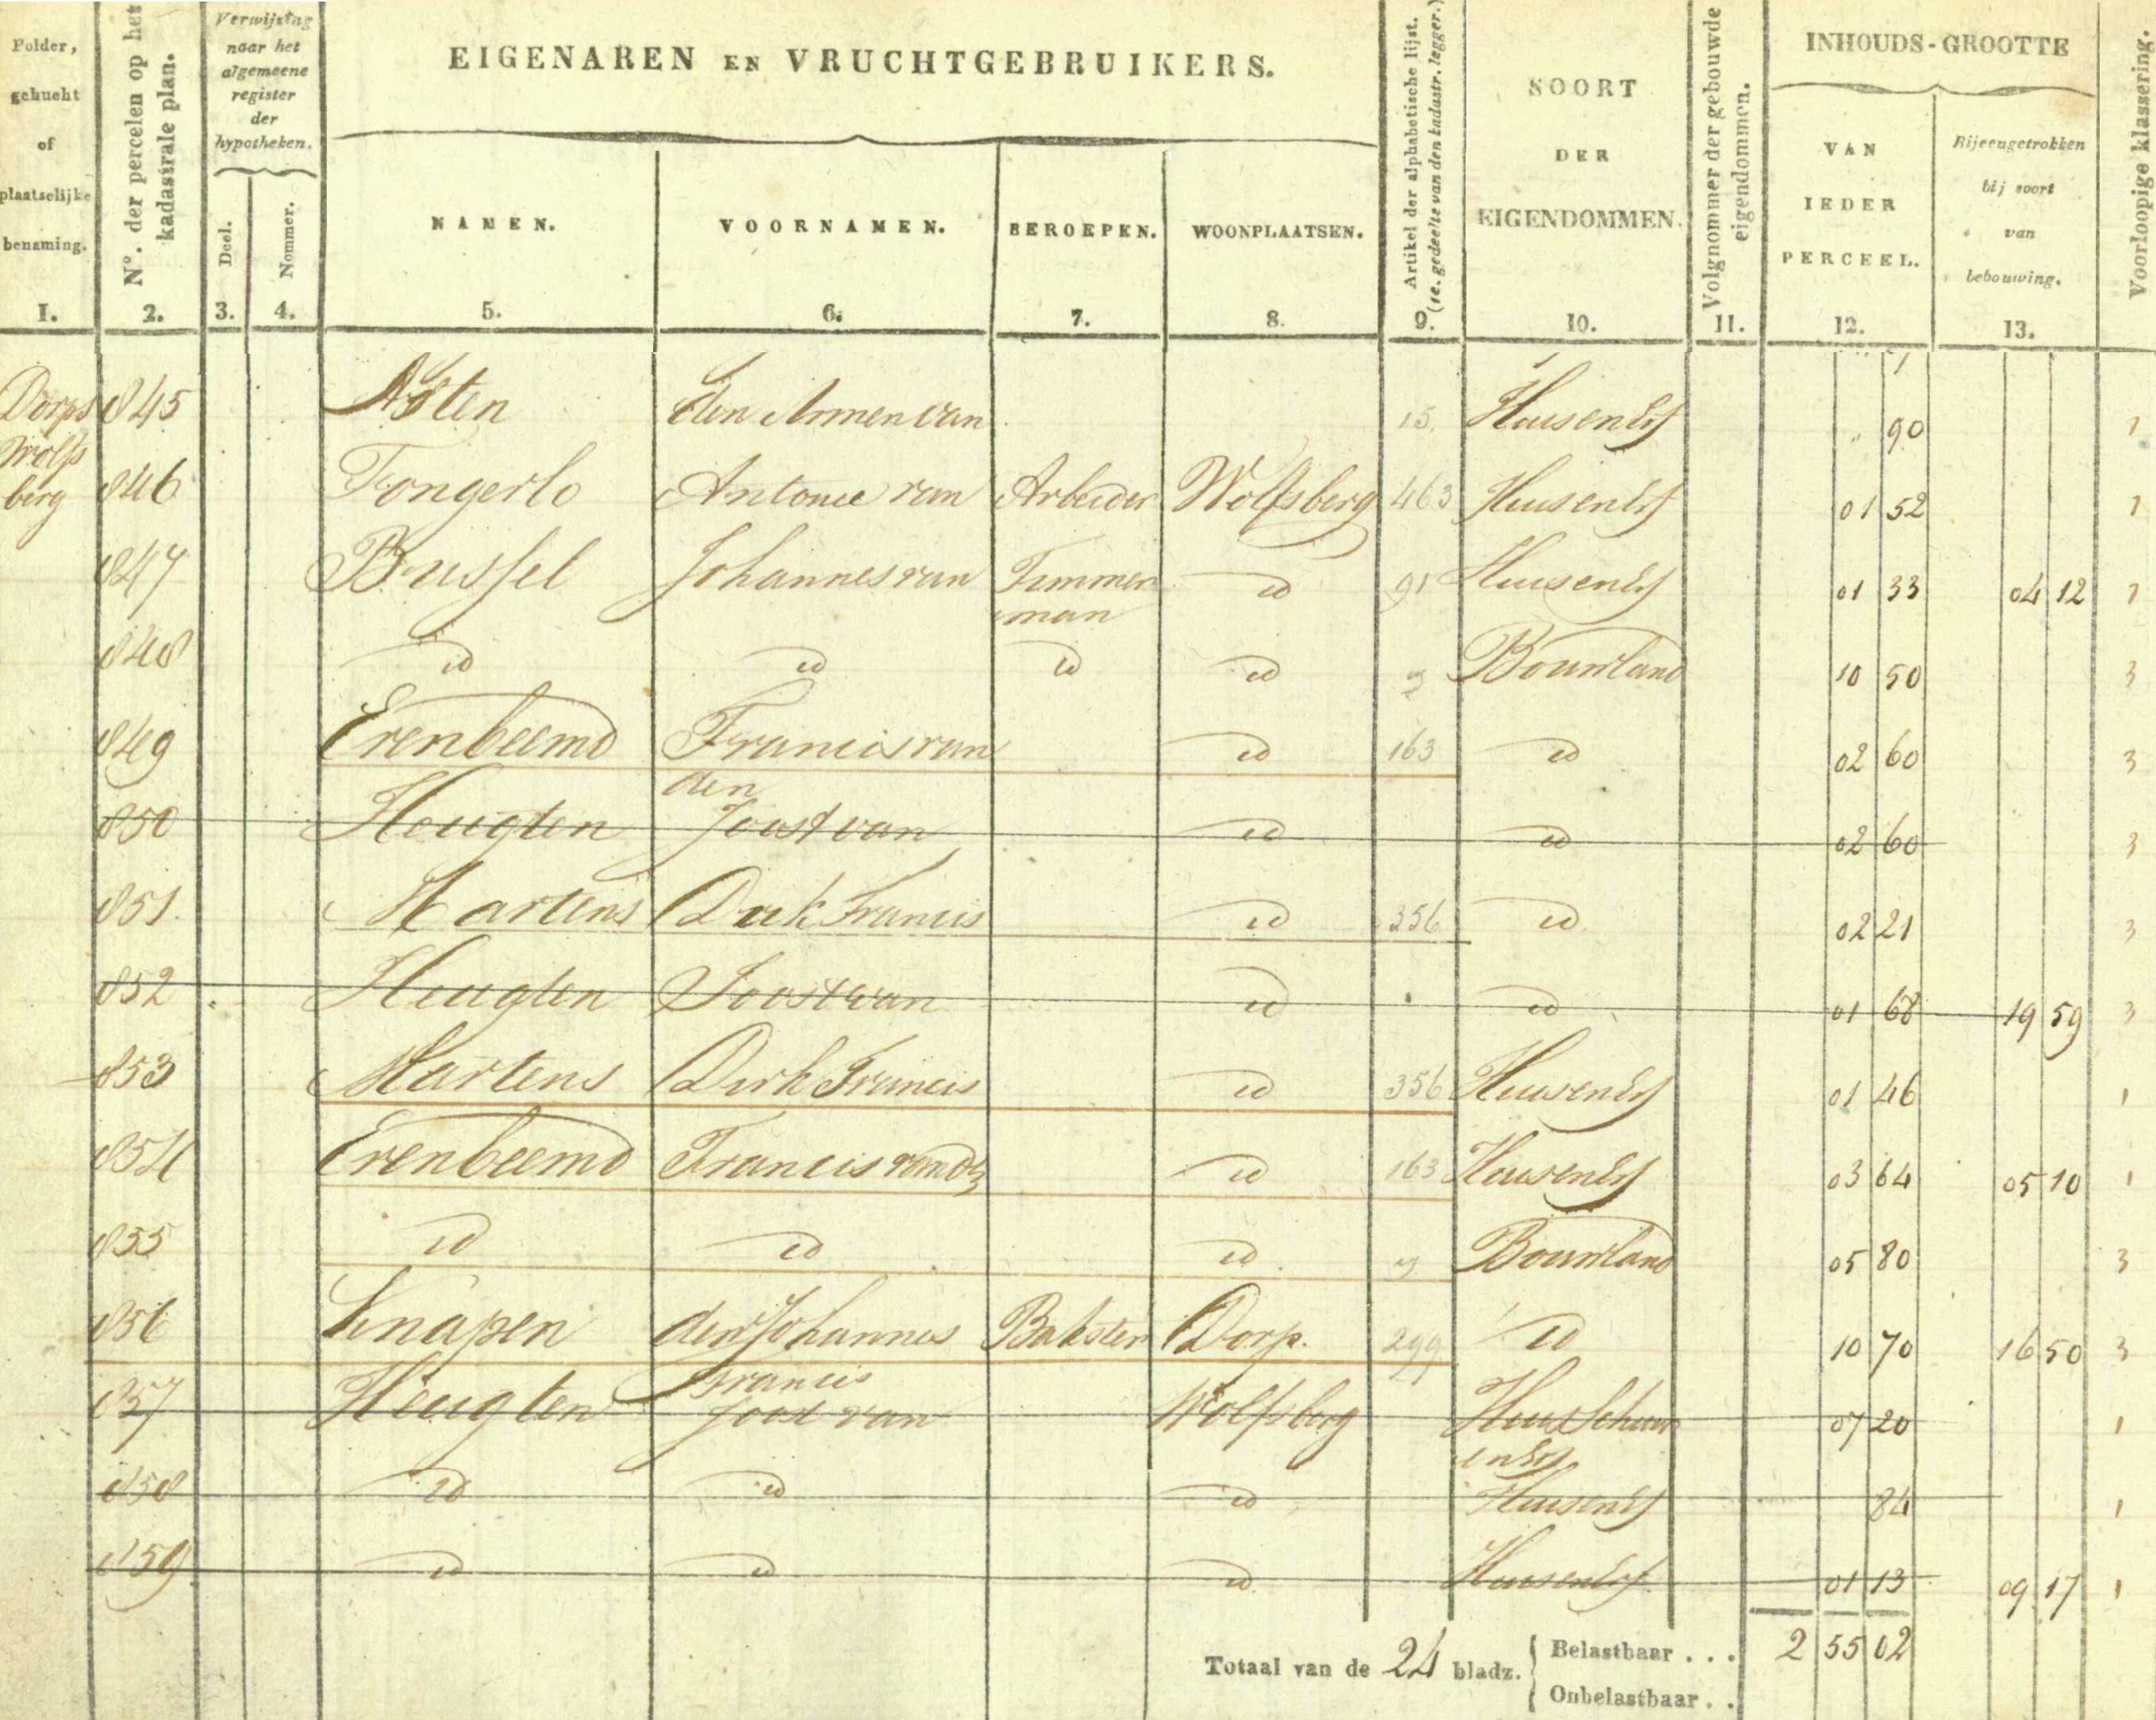 Polder, gehucht of plaatselijke benaming.
N°. der percelen op het kadastrale plan.
Verwijzing naar het algemeene register der hypotheken.
Deel.
Nommer.
EIGENAREN EN VRUCHTGEBRUIKERS.
NAMEN.
VOORNAMEN.
BEROEPEN.
WOONPLAATSEN.
Artikel der alphabetische lijst.
(1e. gedeelte van den kadastr. legger.)
SOORT DER EIGENDOMMEN.
Volgnommer der gebouwde eigendommen.
INHOUDS-GROOTTE
VAN IEDER PERCEEL.
Bijeengetrokken bij soort van bebouwing.
Voorloopige klassering.
1. 2. 3. 4. 5. 6. 7. 8. 9. 10. 11. 12. 13.
Dorps 845 Asten den Armen van 15. Huis en Erf 90 1
Wolfs
berg 846 Tongerlo Antonie van Arbeider Wolfsberg 463 Huis en Erf 01 52 1
847 Brussel Johannes van Timmer 91 Huis en Erf 01 33 04 12 1
man
id
848 id id id id Bouwland 10 50 3
849 Erenbeemd Francis van id 163 id 02 60 3
den
850 Heugten Joost van id id 02 60 3
851. Martens Dirk Francis id 356 id 02 21 3
852 Heugten Joost van id id 01 68 19 59 3
853 Martens Dirk Francis id 356 Huis en Erf 01 46 1
854 Erenbeemd Francis van den id 163 Huis en Erf 03 64 05 10 1
855 id id id Bouwland 05 80 3
856 Knapen den Johannes Bakster Dorp. 299 id 10 70 16 50 3
Francis
857 Heugten Joost van Wolfsberg Huis Schuur 07 20 1
en Erf
858 id id id Huis en Erf 84 1
859 id id id Huis en Erf 01 13 09 17 1
Totaal van de 24 bladz. Belastbaar . . . 2 55 02
Onbelastbaar . .